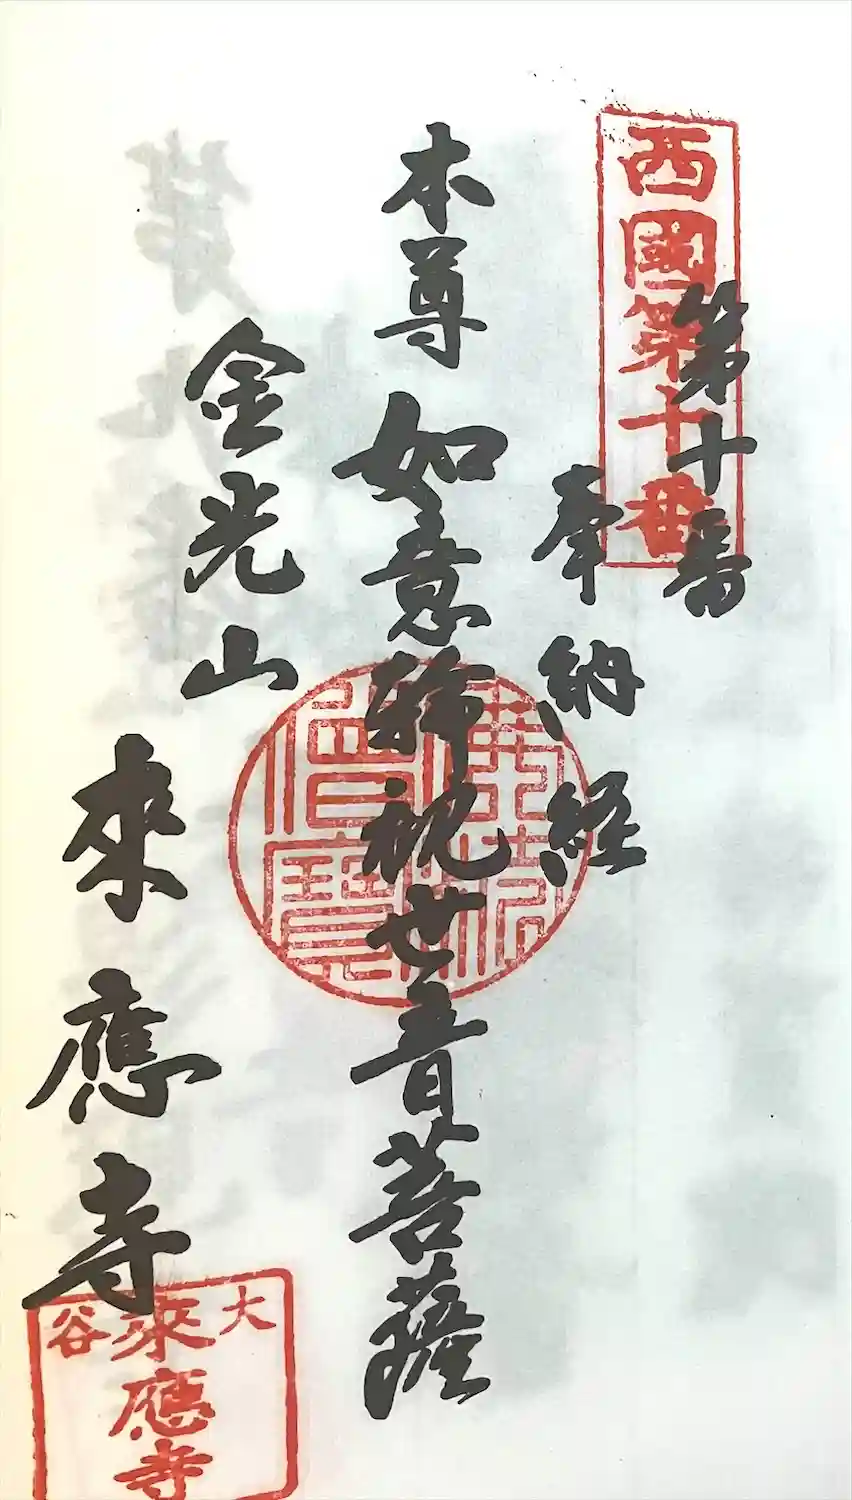 西國第十番
第十番
奉納経
本尊如意輪観世音菩薩
金光山
來應寺
大谷
來應寺